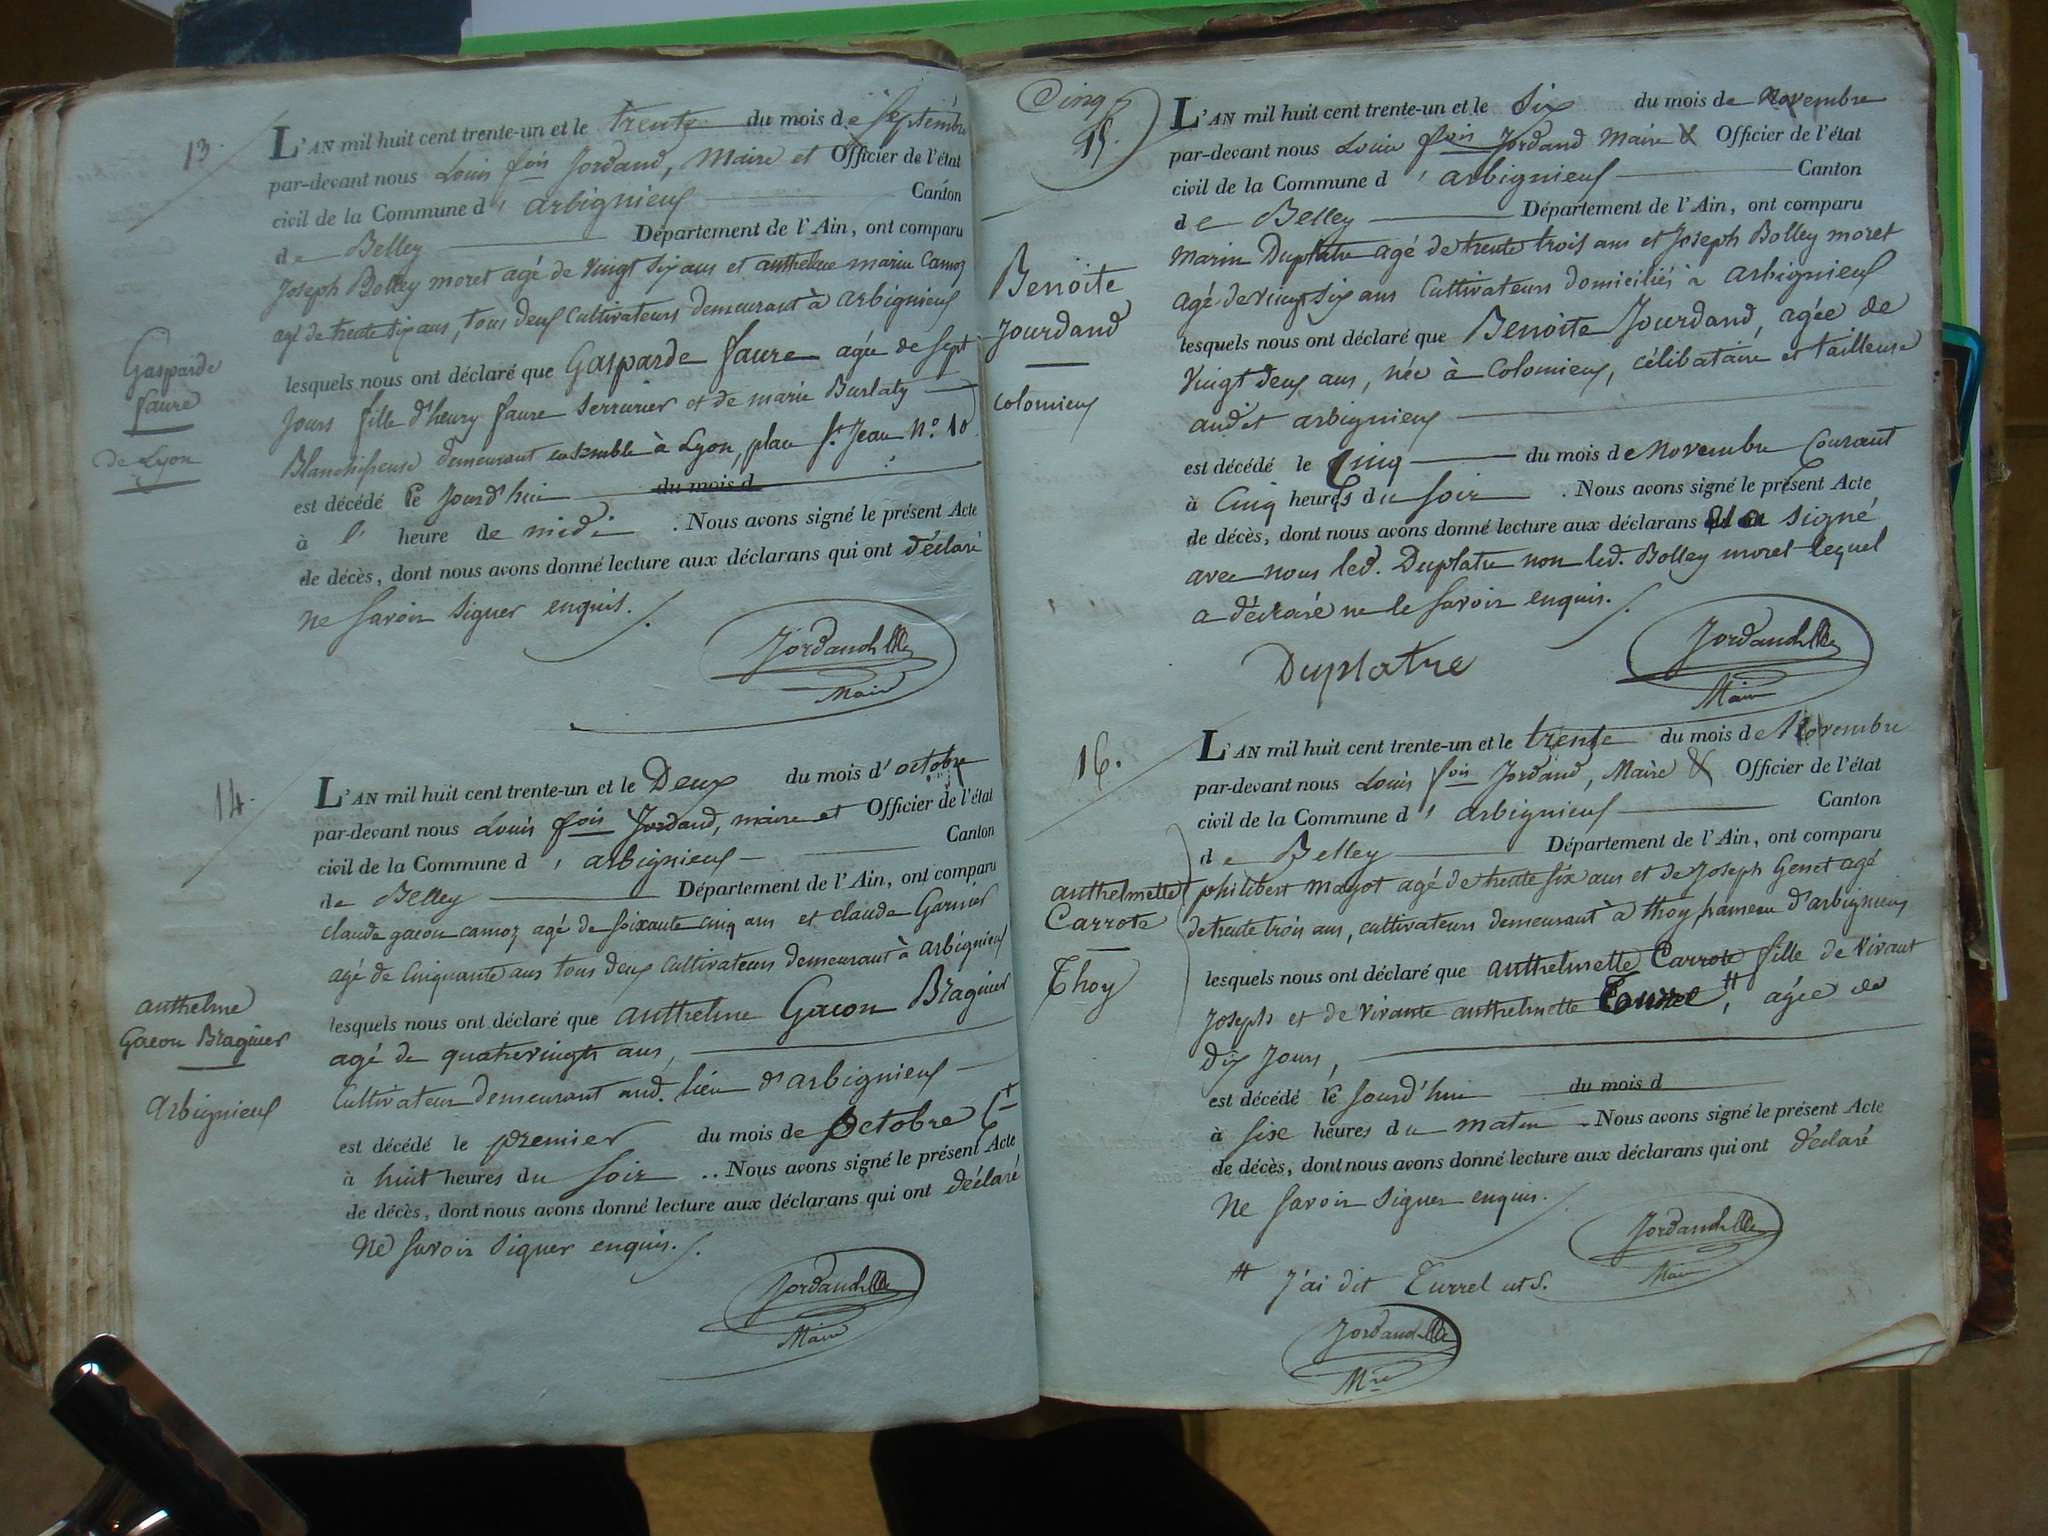 13.
L'AN mil huit cent trente-un et le trente du mois de Septembre
par-devant nous Louis fois Jordand, Maire et Officier de l'état
civil de la Commune d'arbignieux Canton
de Belley Département de l'Ain, ont comparu
Joseph Bolley moret agé de Vingt Six ans et anthelme marin Camoz
agé de trente Six ans, tous deux Cultivateurs demeurant à arbignieux
Gasparde
faure
de Lyon
lesquels nous ont déclaré que Gasparde faure agée de Sept
Jours fille d'henry faure Serrurier et de marie Burlaty
Blanchisseuse demeurant ensemble à Lyon, place St Jean N.o 10
est décédé Ce Jourd'hui du mois d
à l'heure de midi. Nous avons signé le présent Acte
de décès, dont nous avons donné lecture aux déclarans qui ont déclaré
ne Savoir Signer enquis.
Jordand
Maire
14.
L'AN mil huit cent trente-un et le Deux du mois d'octobre
par-devant nous Louis fois Jordand, maire et Officier de l'état
civil de la Commune d'arbignieux Canton
de Belley Département de l'Ain, ont comparu
claude gacon camoz agé de Soixante Cinq ans et claude Garnier
agé de Cinquante ans tous deux Cultivateurs demeurant à arbignieux
anthelme
Gacon Braguier
Arbignieux
lesquels nous ont déclaré que anthelme Gacon Braguier
agé de quatrevingts ans,
Cultivateur demeurant aud. lieu d'arbignieux
est décédé le premier du mois de octobre Ct
à huit heures du Soir.. Nous avons signé le présent Acte
de décès, dont nous avons donné lecture aux déclarans qui ont déclaré
Ne Savoir Signer enquis.
Jordand
Maire
Cinq
15.
L'AN mil huit cent trente-un et le Six du mois de Novembre
par-devant nous Louis fois Jordand Maire & Officier de l'état
civil de la Commune d'arbignieux Canton
de Belley Département de l'Ain, ont comparu
Marin Duplatre agé de trente trois ans et Joseph Bolley moret
agé de vingt Six ans Cultivateurs domiciliés à arbignieux
Benoite
Jourdand
Colomieux
lesquels nous ont déclaré que Benoite Jourdand, agée de
Vingt deux ans, née à Colomieux, célibataire et tailleuse
audit arbignieux
est décédé le Cinq du mois de Novembre Courant
à Cinq heures du Soir. Nous avons signé le présent Acte
de décès, dont nous avons donné lecture aux déclarans signé
avec nous led. Duplatre non led. Bolley moret lequel
a déclaré ne le Savoir enquis.
Duplatre
Jordand
Maire
16.
L'AN mil huit cent trente-un et le trente du mois de Novembre
par-devant nous Louis fois Jordand, Maire & Officier de l'état
civil de la Commune d'arbignieux Canton
de Belley Département de l'Ain, ont comparu
philibert mayot agé de trente six ans et de Joseph Genet agé
de trente trois ans, cultivateurs demeurant à thoy hameau d'arbignieux
anthelmette
Carrote
Thoy
lesquels nous ont déclaré que anthelmette Carrote fille de Vivant
Joseph et de vivante anthelmette #, agée de
dix Jours,
est décédé Ce Jourd'hui du mois d
à Six heures du matin. Nous avons signé le présent Acte
de décès, dont nous avons donné lecture aux déclarans qui ont déclaré
Ne Savoir Signer enquis.
Jordand
Maire
# J'ai dit Turrel ut S.
Jordand
Mre